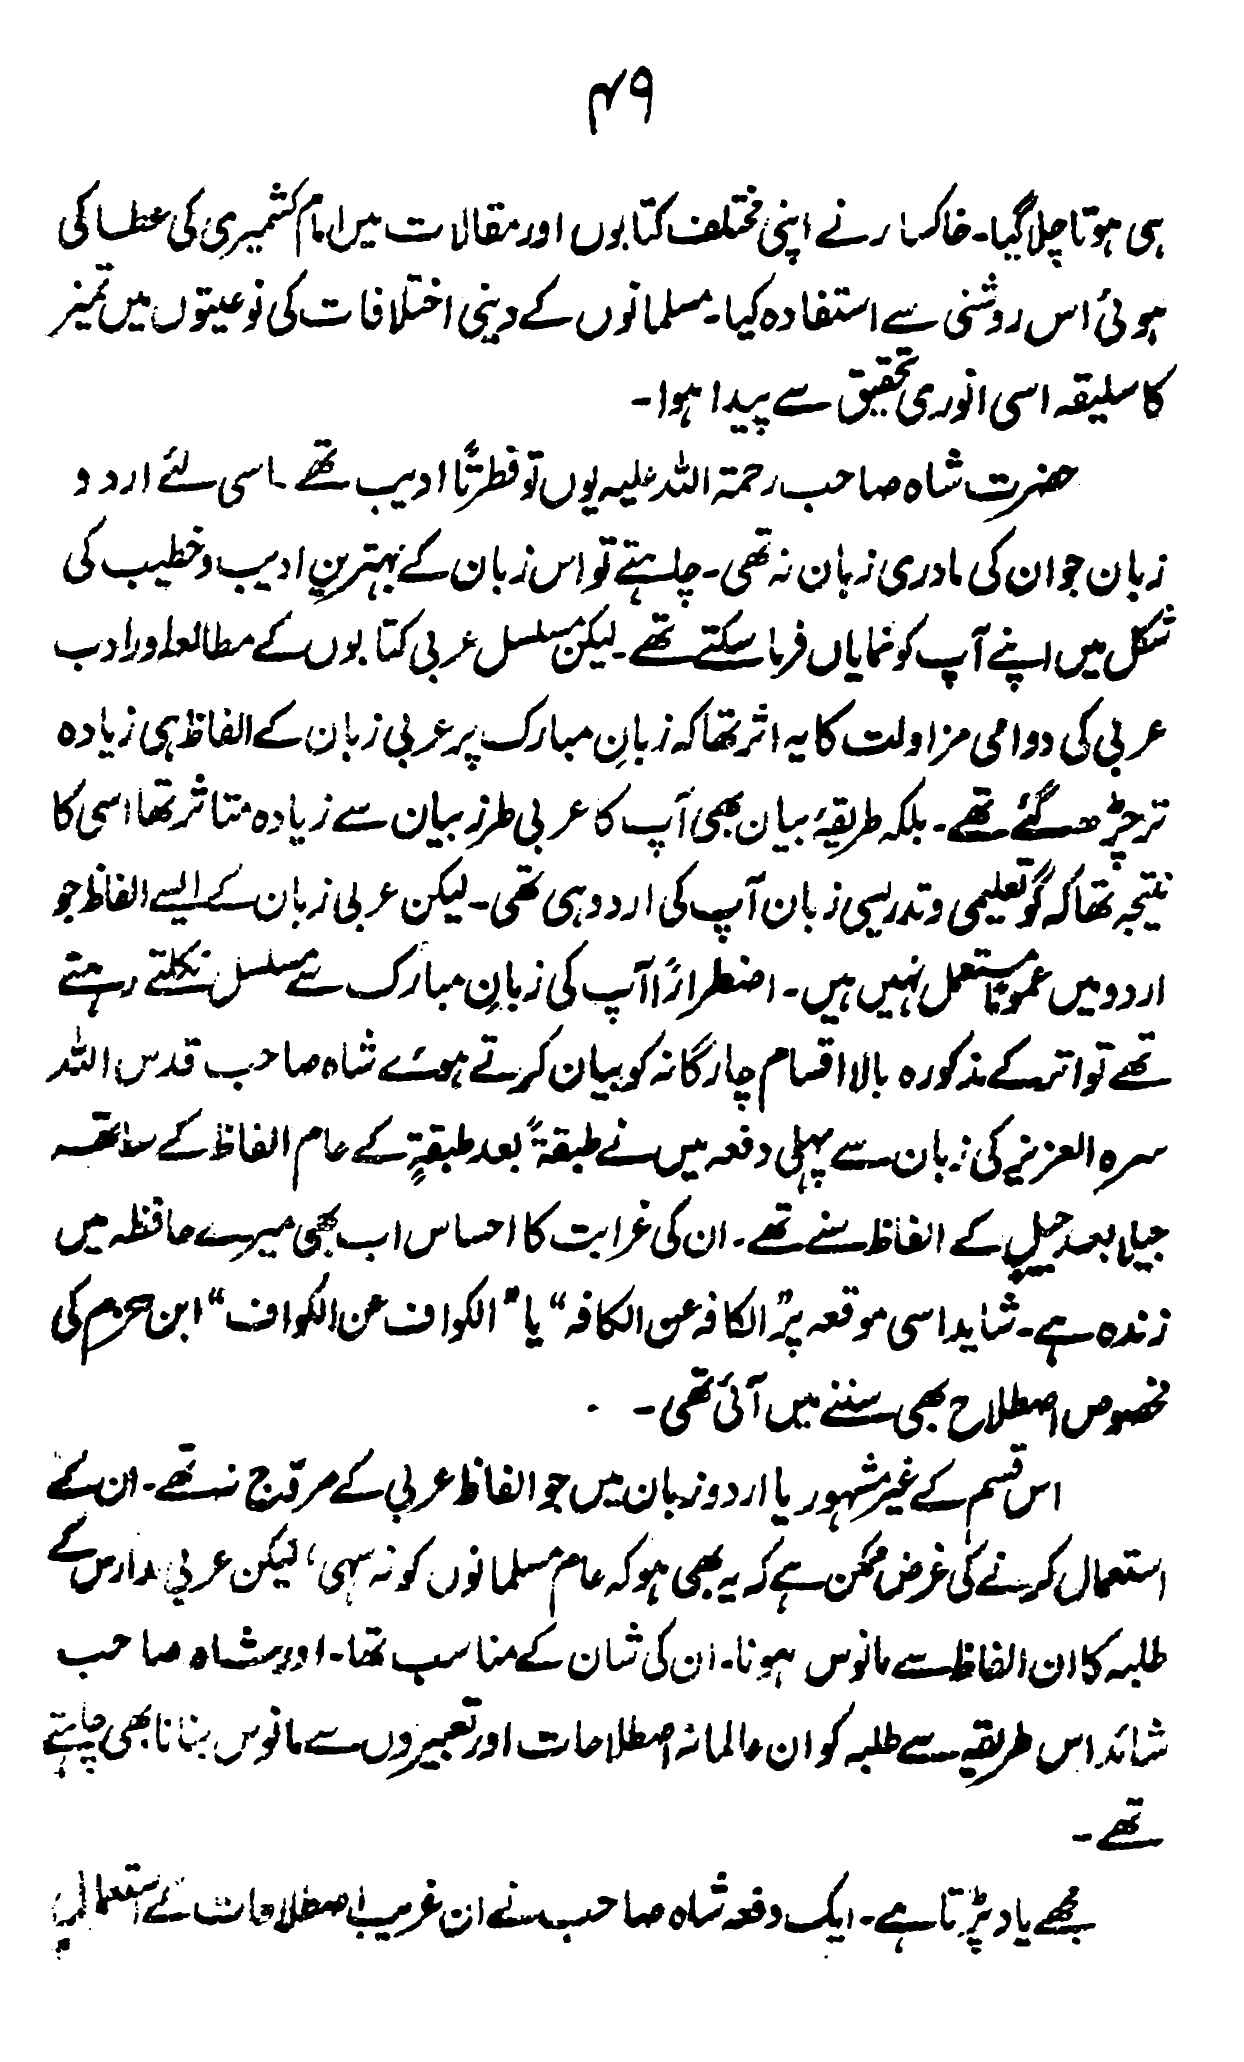 ۴۹
ہی ہوتا چلا گیا۔ خاکسار نے اپنی مختلف کتابوں اور مقالات میں امام کشمیری کی عطا کی
ہوئی اس روشنی سے استفادہ کیا۔ مسلمانوں کے دینی اختلافات کی نوعیتوں میں تمیز
کا سلیقہ اسی انوری تحقیق سے پیدا ہوا۔
حضرت شاہ صاحب رحمۃ اللہ علیہ یوں تو فطرتًا ادیب تھے۔ اسی لئے اردو
زبان جو ان کی مادری زبان نہ تھی۔ چاہتے تو اس زبان کے بہترین ادیب و خطیب کی
شکل میں اپنے آپ کو نمایاں فرما سکتے تھے۔ لیکن مسلسل عربی کتابوں کے مطالعہ اور ادب
عربی کی دوامی مزاولت کا یہ اثر تھا کہ زبانِ مبارک پر عربی زبان کے الفاظ ہی زیادہ
تر چڑھ گئے تھے۔ بلکہ طریقۂ بیان بھی آپ کا عربی طرز بیان سے زیادہ متاثر تھا اسی کا
نتیجہ تھا کہ گو تعلیمی و تدریسی زبان آپ کی اردو ہی تھی۔ لیکن عربی زبان کے ایسے الفاظ جو
اردو میں عمومًا مستعمل نہیں ہیں۔ اضطرارًا آپ کی زبانِ مبارک سے مسلسل نکلتے رہتے
تھے تو اتر کے مذکورہ بالا اقسام چارگانہ کو بیان کرتے ہوئے شاہ صاحب قدس اللہ
سرہ العزیز کی زبان سے پہلی دفعہ میں نے طبقۃً بعد طبقۃٍ کے عام الفاظ کے ساتھ
جیلا بعد جیلٍ کے الفاظ سنے تھے۔ ان کی غرابت کا احساس اب بھی میرے حافظہ میں
زندہ ہے۔ شاید اسی موقعہ پر "الکافہ عن الکافہ" یا "الکواف عن الکواف" ابن حزم کی
مخصوص اصطلاح بھی سننے میں آئی تھی۔
اس قسم کے غیر مشہور یا اردو زبان میں جو الفاظ عربی کے مروّج نہ تھے۔ ان کے
استعمال کرنے کی غرض ممکن ہے کہ یہ بھی ہو کہ عام مسلمانوں کو نہ سہی، لیکن عربی مدارس کے
طلبہ کا ان الفاظ سے مانوس ہونا۔ ان کی شان کے مناسب تھا۔ اور شاہ صاحب
شائد اس طریقہ سے طلبہ کو ان عالمانہ اصطلاحات اور تعبیروں سے مانوس بنانا بھی چاہتے
تھے۔
مجھے یاد پڑتا ہے۔ ایک دفعہ شاہ صاحب نے ان غریب اصطلاحات کے استعمال پر